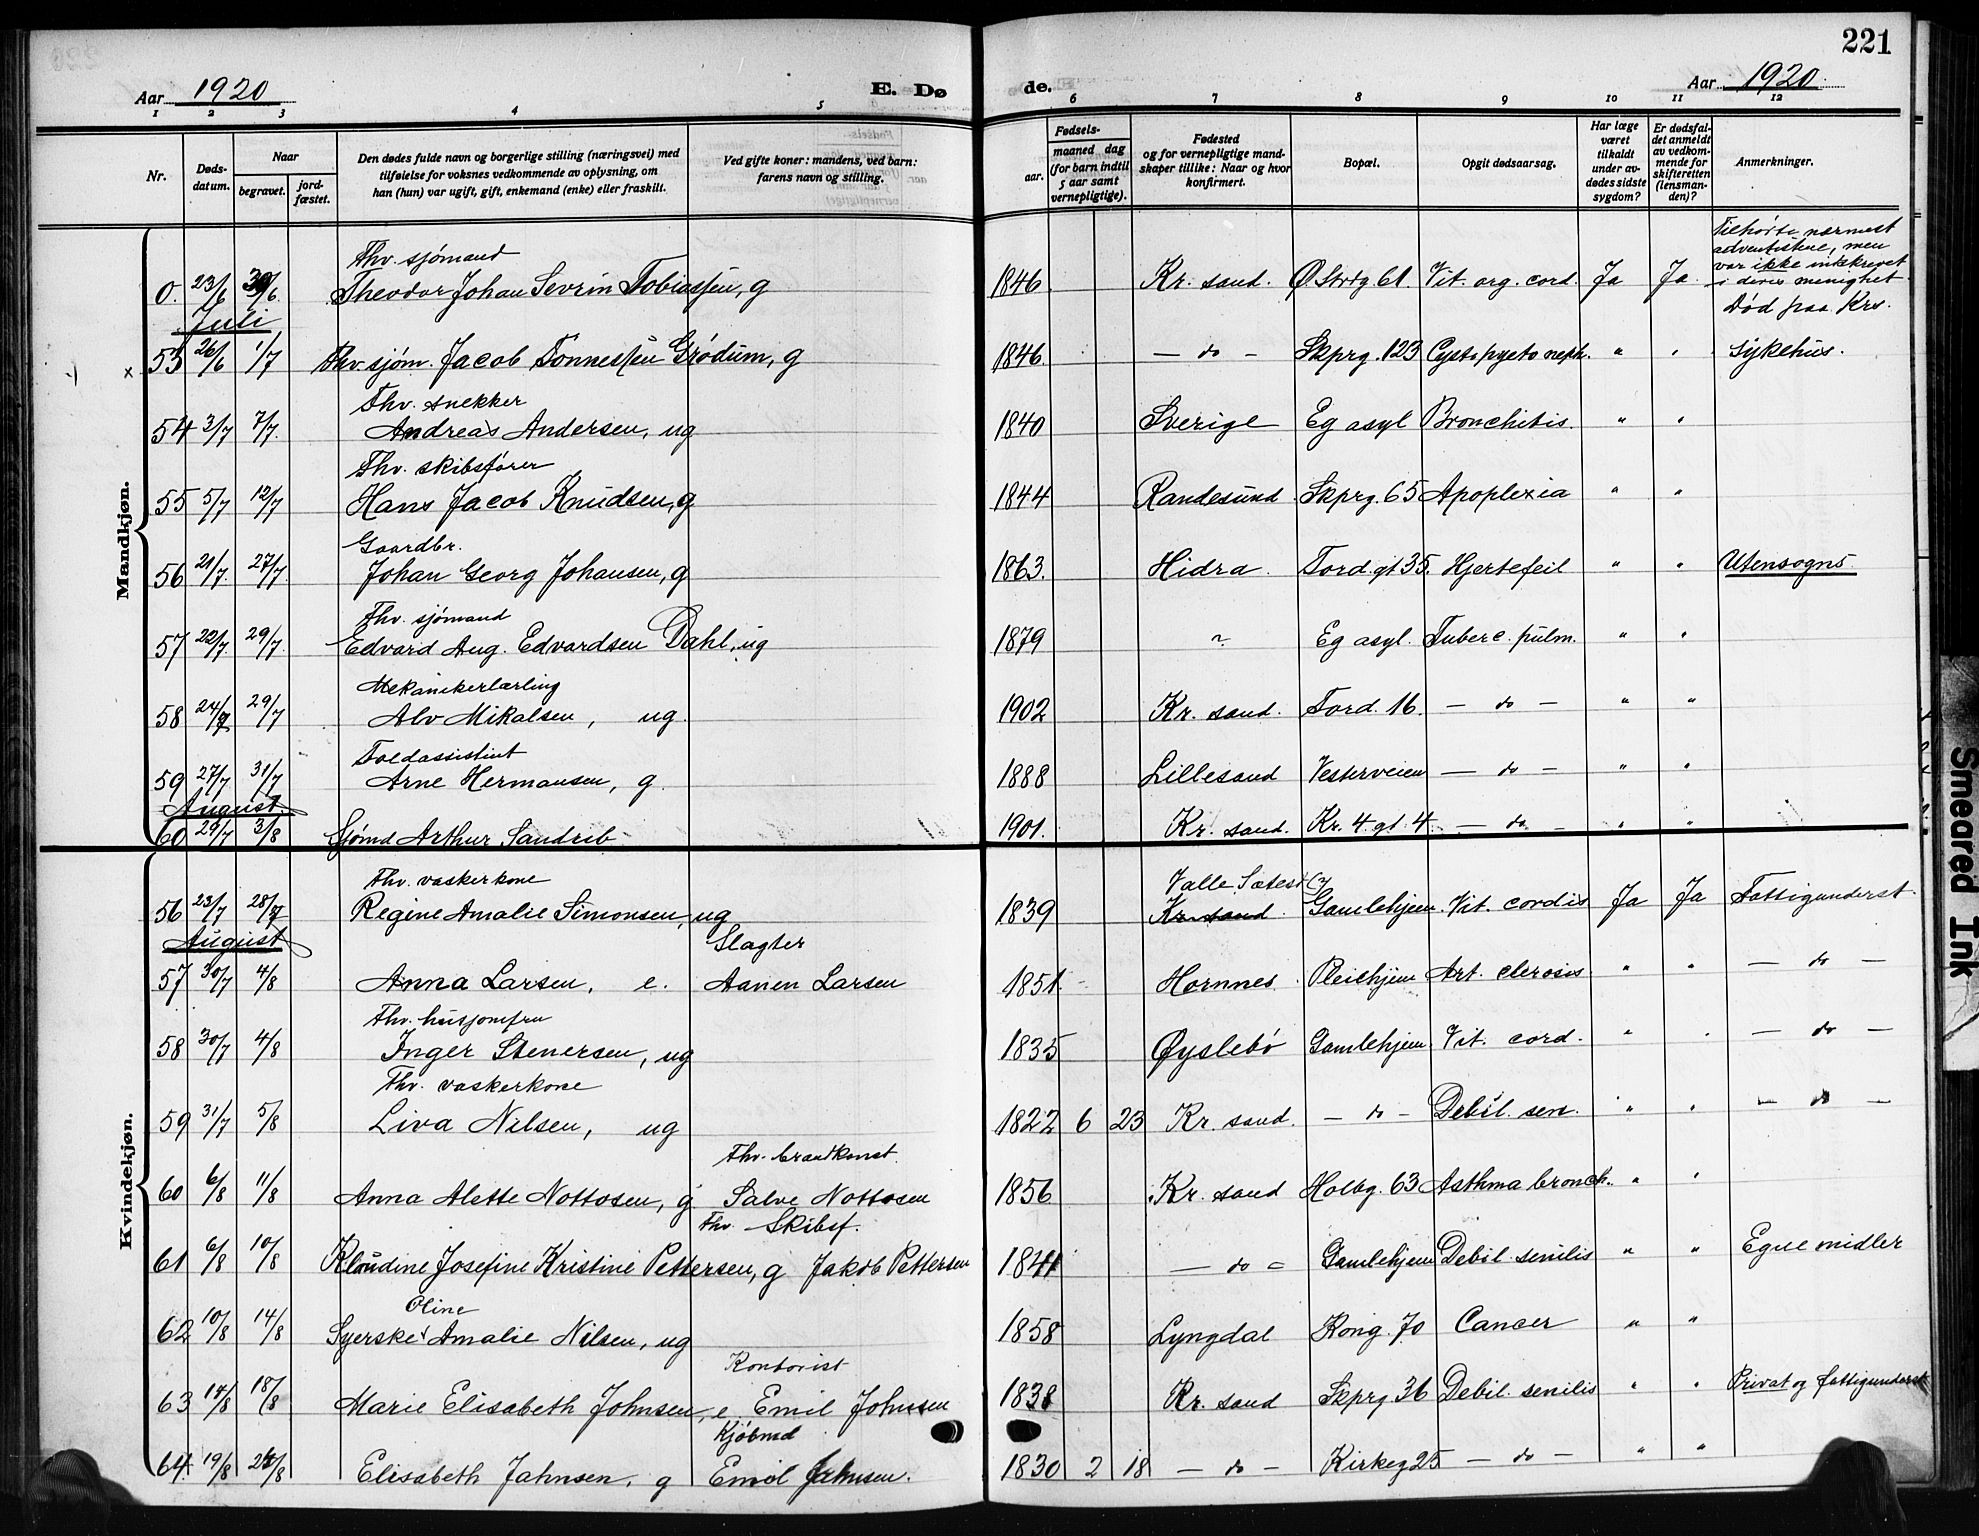 221
Aar 1920 E. Dø de. Aar 1920.
1 2 3 4 5 6 7 8 9 10 11 12
Nr.
Døds-
datum.
Naar
begravet.
jord-
fæstet.
Den dødes fulde navn og borgerlige stilling (næringsvei) med
tilføielse for voksnes vedkommende av oplysning, om
han (hun) var ugift, gift, enkemand (enke) eller fraskilt.
Ved gifte koner: mandens, ved barn:
farens navn og stilling.
Fødsels-
aar.
maaned dag
(for barn indtil
5 aar samt
vernepligtige).
Fødested
og for vernepligtige mand-
skaper tillike: Naar og hvor
konfirmert.
Bopæl.
Opgit dødsaarsag.
Har læge
været
tilkaldt
under av-
dødes sidste
sygdom?
Er dødsfal-
det anmeldt
av vedkom-
mende for
skifteretten
(lensman-
den)?
Anmerkninger.
Mandkjøn.
Fhv. sjømand
0. 23/6 30/6. Theodor Johan Sevrin Tobiassen, g 1846 Kr. sand. Ø Strdg 61 Vit. org. cord. Ja Ja
Tilhørte nærmest
adventistene, men
var ikke indskrevet
i deres menighet
Død paa Krs.
Juli
x 53 26/6 1/7 Fhv. sjøm. Jacob Tønnessen Grødum, g 1846. — do — Skprg. 123 Cystopyelo neph. " " Sykehus.
Fhv. snekker
54 3/7 7/7. Andreas Andersen, ug 1840 Sverige Eg asyl Bronchitis. " "
Fhv. skibsfører
55 5/7 12/7 Hans Jacob Knudsen, g 1844 Randesund Skprg. 65 Apoplexia " "
Gaardbr.
56 21/7. 27/7 Johan Georg Johansen, g 1863. Hidra. Tord. gt 35. Hjertefeil " " Utensogns
Fhv. sjømand
57 22/7 29/7 Edvard Aug. Edvardsen Dahl, ug 1879 ~ Eg asyl. Tuberc. pulm. " "
Mekanikerlærling
58 24/7 29/7 Alv Mikalsen, ug. 1902 Kr. sand. Tord. 16. — do — " "
Toldassistent
59 27/7 31/7 Arne Hermansen, g. 1888 Lillesand Vesterveien — do — " "
August.
60 29/7 3/8 Sjømd Arthur Sandrib 1901. Kr. sand. Kr. 4. gt. 4 — do — " "
Kvindekjøn.
Fhv. vaskerkone Valle Sætesd
56 23/7 28/7 Regine Amalie Simonsen, ug 1839 Kr. sand. Gamlehjem. Vit. cordis Ja Ja Fattigunderst.
August
Slagter
57 30/7 4/8 Anna Larsen, e. Aanen Larsen 1851. Hornnes. Pleiehjem Art. clerosis " " — do —
Fhv. husjomfru
58 30/7 4/8 Inger Stenersen, ug 1835 Øyslebø Gamlehjem. Vit. cord. " " — do —
Fhv. vaskerkone
59 31/7 5/8 Liva Nilsen, ug 1822 6 23 Kr. sand. — do — Debil. sen. " " — do —
Fhv. brandkonst.
60 6/8 11/8 Anna Alette Nottosen, g Salve Nottosen 1856 Kr. sand Holbg. 63 Asthma bronch. " "
Fhv. Skibsf.
61 6/8 10/8 Klaudine Josefine Kristine Pettersen, g Jakob Pettersen 1841 — do — Gamlehjem Debil. senilis " " Egne midler
Oline
62 10/8 14/8 Syerske Amalie Nilsen, ug 1858 Lyngdal Kong. 70 Cancer " "
Kontorist
63 14/8 18/8 Marie Elisabeth Johnsen, e Emil Johnsen 1838 Kr. sand Skprg 36 Debil. senilis " " Privat og fattigunderst
Kjøbmd
64 19/8 24/8 Elisabeth Jahnsen, g Emil Jahnsen. 1830 2 18 — do — Kirkeg 25 — do — " "
Smeared Ink